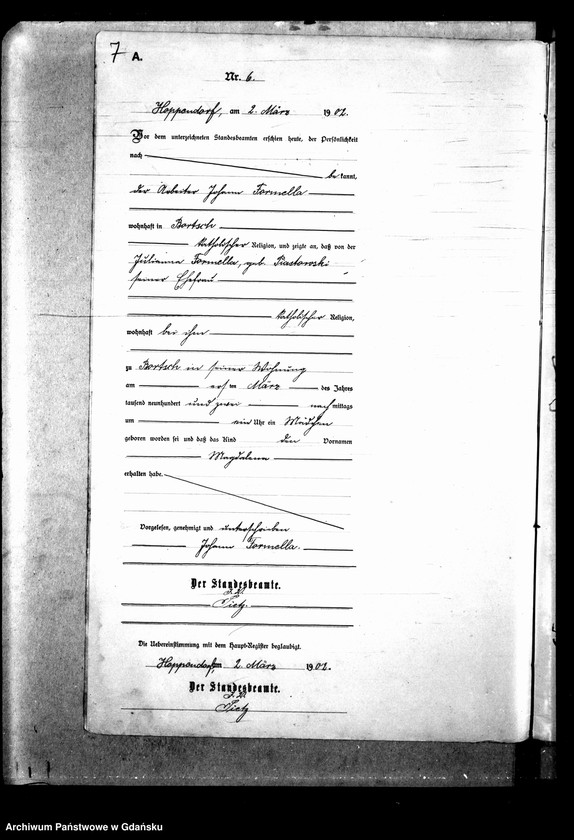 7 A.
Nr. 6.
Hoppendorf, am 2. März 1902.
Vor dem unterzeichneten Standesbeamten erschien heute, der Persönlichkeit
nach
bekannt,
der Arbeiter Johann Formella
wohnhaft in Bortsch
katholischer Religion, und zeigte an, daß von der
Julianna Formella, geb. Piastowski
seiner Ehefrau
katholischer Religion,
wohnhaft bei ihm
zu Bortsch in seiner Wohnung
am ersten März des Jahres
tausend neunhundert und zwei nachmittags
um ein Uhr ein Mädchen
geboren worden sei und daß das Kind den Vornamen
Magdalena
erhalten habe.
Vorgelesen, genehmigt und unterschrieben
Johann Formella.
Der Standesbeamte.
Tietz.
Die Uebereinstimmung mit dem Haupt-Register beglaubigt.
Hoppendorf, am 2. März 1902.
Der Standesbeamte.
Tietz
Archiwum Państwowe w Gdańsku